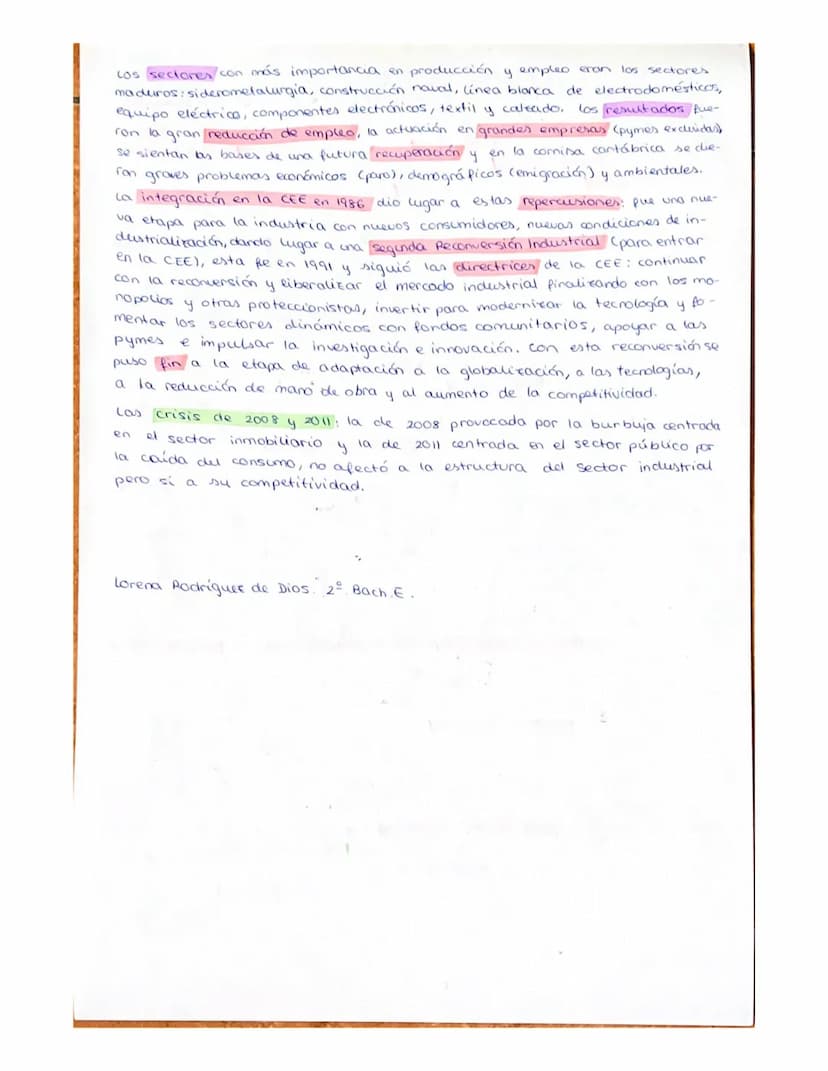 Los sectores con más importancia en producción y empleo eran los sectores
maduros: siderometalurgia, construcción naval, línea blanca de electrodomésticos,
equipo eléctrico, componentes electrónicos, textil y calzado. Los resultados fue-
ron la gran reducción de empleo, la actuación en grandes empresas (pymes excluidas),
se sientan las bases de una futura recuperación y en la cornisa cantábrica se die-
ran graves problemas económicos (paro), demográficos (emigración) y ambientales.
La integración en la CEE en 1986 dio lugar a estas repercusiones: fue una nue-
va etapa para la industria con nuevos consumidores, nuevas condiciones de in-
dustrialización, dando lugar a una Segunda Reconversión Industrial (para entrar
en la CEE), esta fue en 1991 y siguió las directrices de la CEE: continuar
con la reconversión y liberalizar el mercado industrial finalizando con los mo-
nopolios y otras proteccionistas, invertir para modernizar la tecnología y fo-
mentar los sectores dinámicos con fondos comunitarios, apoyar a las
pymes e impulsar la investigación e innovación. Con esta reconversión se
puso fin a la etapa de adaptación a la globalización, a las tecnologías,
a la reducción de mano de obra y al aumento de la competitividad.
Las crisis de 2008 y 2011: la de 2008 provocada por la burbuja centrada
en el sector inmobiliario y la de 2011 centrada en el sector público por
la caída del consumo, no afectó a la estructura del sector industrial
pero sí a su competitividad.
Lorena Rodríguez de Dios. 2º Bach.E.